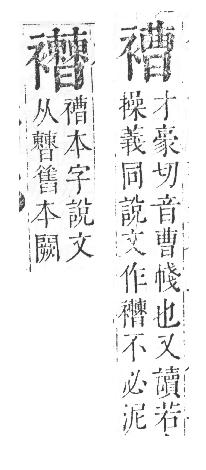 褿
才豪切音曹帴也又讀若
操義同說文作不必泥
褿本字說文
从𣍘舊本闕